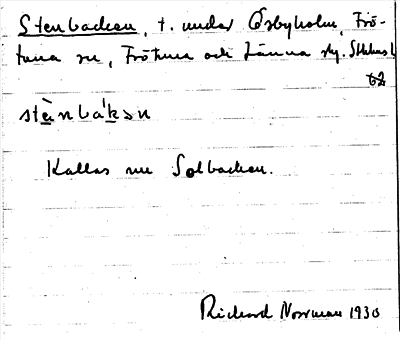 Stenbacken, t. under Ösbyholm, Frö-
tuna sn, Frötuna och Länna skg. Sthlms l.
62
stènbákən
Kallas nu Solbacken.
Richard Norrman 1930